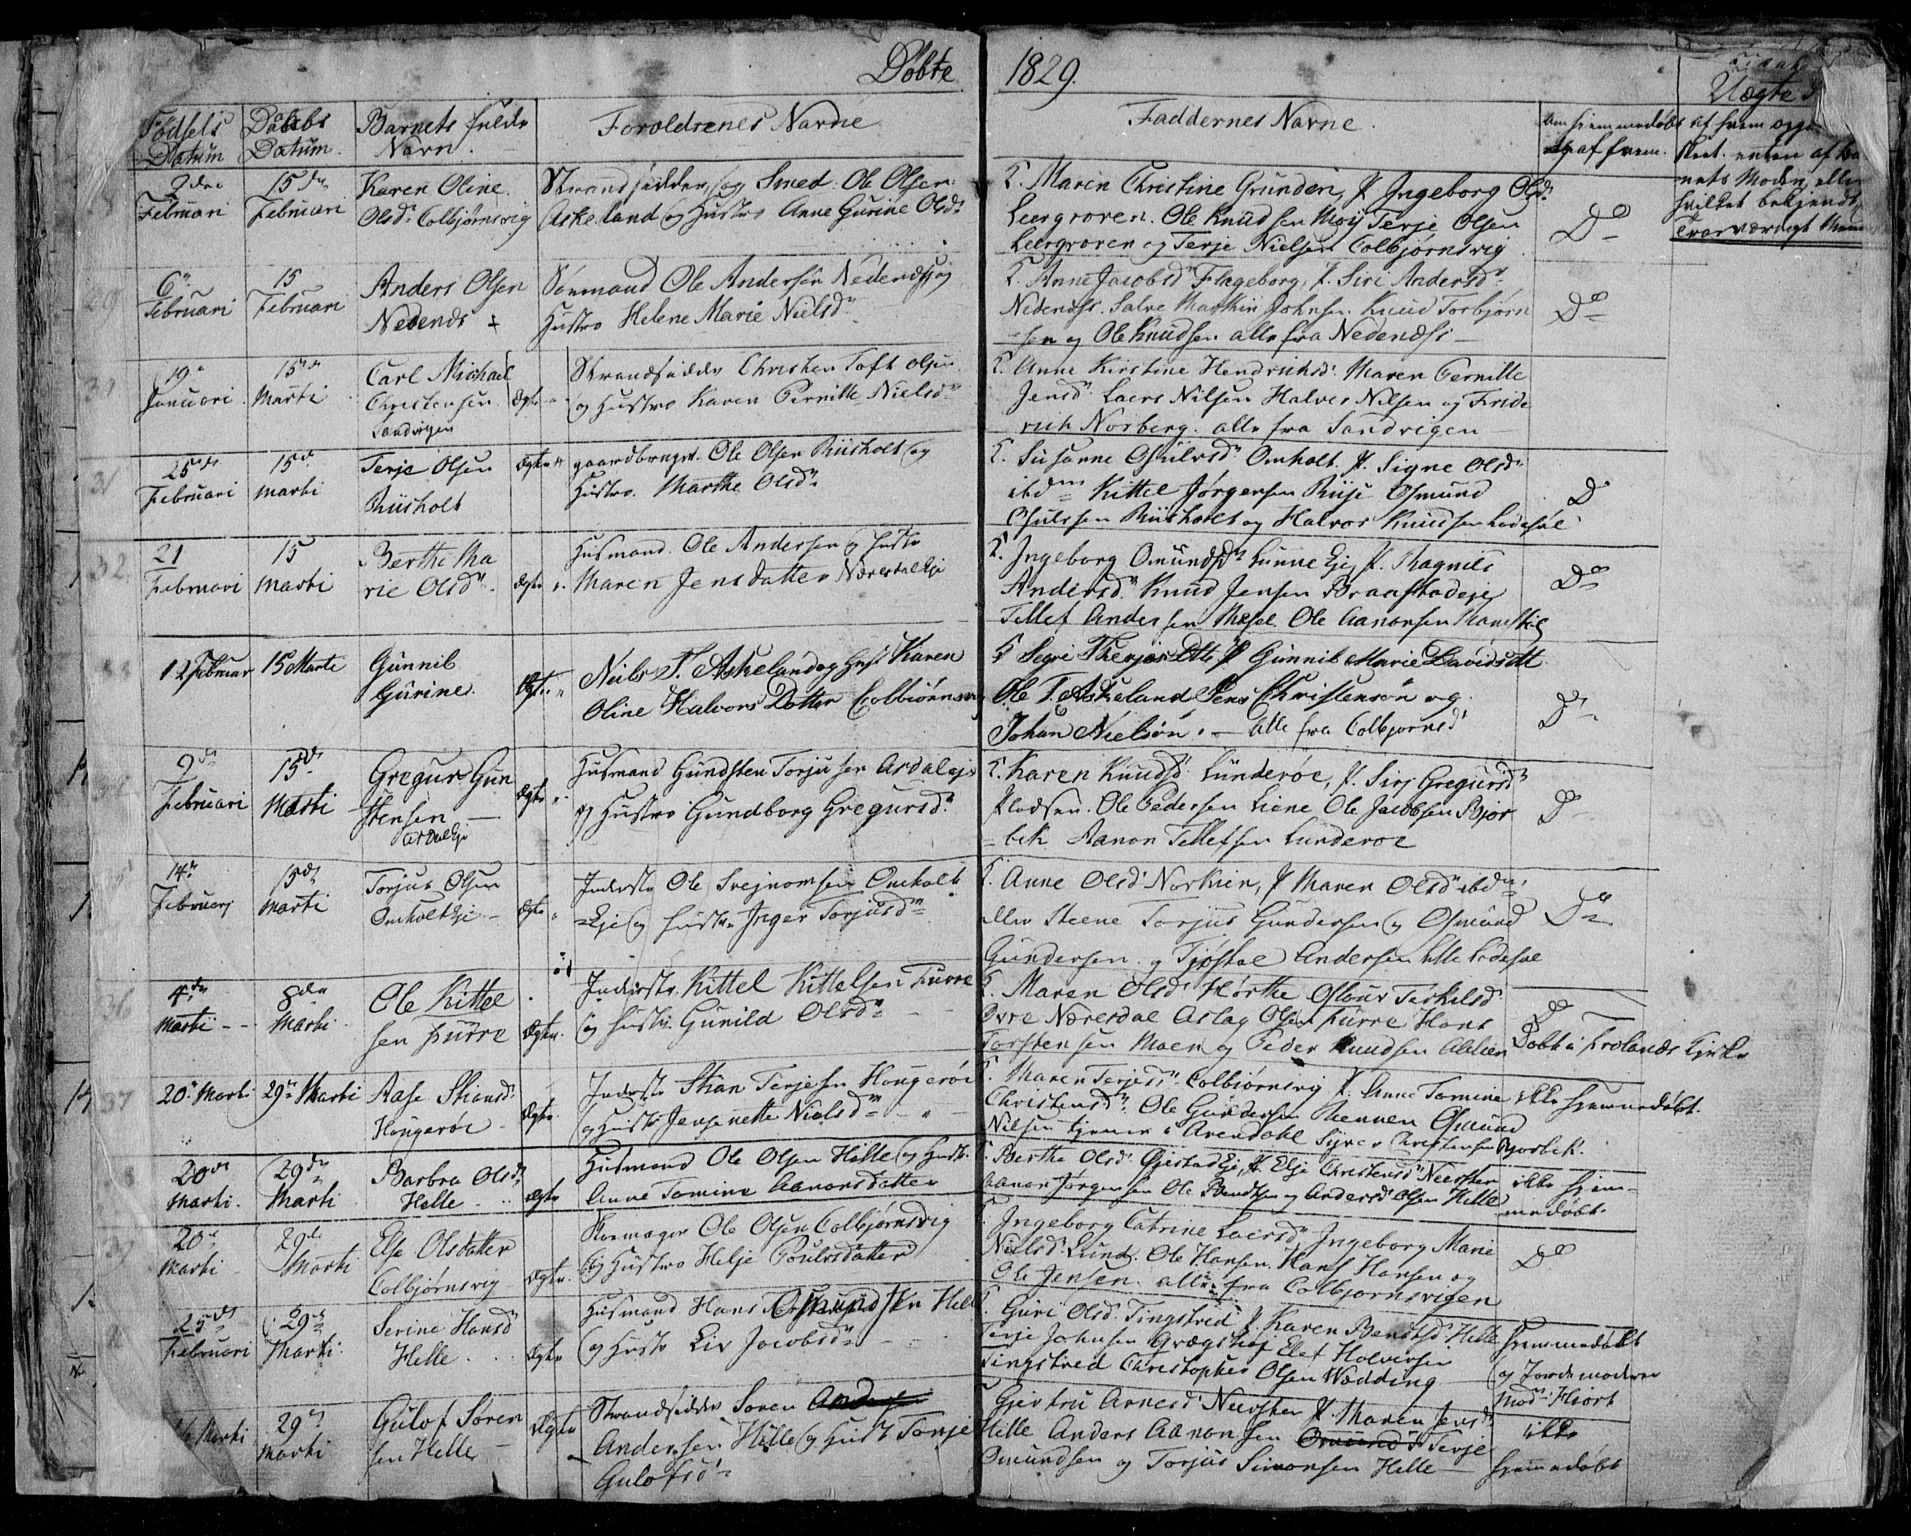 Døbte 1829.
Fødsels Datum
Daabs Datum
Barnets fulde Navn
Forældrenes Navne
Faddernes Navne.
om hjemmedøbt og af hvem.
Uægte
2den Februari
15de Februari
Karen Oline
Olsd. Colbjørnsvig
Strandsidder og Smed Ole Olsen
Askeland og Hustro Anne Gurine Olsd.
F. Maren Christine Grunden, J. Ingeborg Olsd.
Leergroven. Ole Knudsen Moy Terje Olsen
Leergroven og Terje Nielsen Colbjørnsvig
Do
29
6te Februari
15 Februari
Anders Olsen
Nedenes
Sømand Ole Andersen Nedenes og
Hustro Helene Marie Nielsd.
F. Anne Jacobsd. Flageborg, J. Siri Andersd.
Nedenæss. Salve Johnsen Knud Torbjørn
sen og Ole Knudsen alle fra Nedenæss
Do
19 Januari
15de Marti
Carl Michael
Christensen
Sandvigen
Ægte
Strandsidder Christen Toft Olsen
og Hustro Karen Pernille Nielsd.
F. Anne Kirstine Hendriksd. Maren Pernille
Jensd. Laers Nilsen Halvor Nilsen og Fride
rich Norberg. alle fra Sandvigen
31
25de Februari
15de Marti
Terje Olsen
Riisholt
Ægte
gaardbruger Ole Olsen Riisholt og
Hustro. Marthe Olsd.
F. Susanne Osulvsd. Omholt. J. Signe Olsd.
ibdm Kittel Jørgensen Riise Osmund
Osulssen Riisholt og Halvor Knudsen Ladesøl
Do
32
21 Februari
15 Marti
Berthe Ma
rie Olsd.
Ægte
Husmand. Ole Andersen og Hustro
Maren Jensdatter Næresdal Eje
F. Ingeborg Omundsd. Lunne Eje, J. Ragnild
Andersd. Knud Jensen Braastadeje
Tellef Andersen Mesel Ole Aanonsen
Do
12 Februar
15 Marti
Gunnil
Gurine.
Ægte
Neils T. Askeland og Hust Karen
Oline Halvors Dotter Colbiørnsvig
F Segri Therjes Dtt J Gunnil Marie Davids dtt
Ole T. Askeland Jens Christensøn og
Johan Nielsøn. alle fra Colbjørnsd
Do
9de Februari
15de Marti
Gregurs Gun
stensen
Ardal Eje
Ægte
Husmand Gundsten Torjusen Ardaleje
og Hustro Gundborg Gregursd.
F. Karen Knudsd. Lunderøe, J. Siri Gregursd.
Ole Pedersen Liene Ole Jacobsen Bjor
bek Aanon Tellefsen Lunderøe
Do
14de Februarj
15de Marti
Torjus Olsen
Omholt Eje
Ægte
Inderste Ole Svejnomsen Omholt
Eje og Hustro Inger Torjusd.
F. Anne Olsd. J. Maren Olsd ibdm
Steene Torjus Gundersen og Osmund
Gundersen og Tjøstol Andersen alle Ladesøl
Do
36
4de Marti
8de Marti
Ole Kittel
sen Furre
Ægte
Inderste Kittel Kittelsen Furre
og Hustro Gunild Olsd.
F. Maren Olsd Hørthe Torkilsd
Øvre Næresdal Aslag Olsen Furre Hans
Torstensen Moen og Peder Knudsen
Do
Døbt i Frolands Kirke
37
20de Marti
29de Marti
Aase Stiansd.
Hougerøe
Ægte
Inderste Stian Terjesen Hougerøe
og Hustro Jensenette Nielsd.
F. Maren Terjesd. Colbiørnsvig J. Anne Tomine
Christensd. Ole Gundersen Osmund
Nilsen tjener i Arendahl Christensen Bjorbek.
ikke hjemmedøbt.
20de Marti
29de Marti
Barbra Olsd.
Helle
Ægte
Husmand Ole Olsen Helle og Hust.
Anne Tomine Aanonsdatter
F. Berthe Olsd. Øiestad Eje, J. Else Christensd. Neersten
Aanon Jørgensen Ole Bendtsen og Anders Olsen Helle
ikke hjem-
medøbt
20de Marti
29de Marti
Else Olsdatter
Colbjørnsvig
Ægte
Skomager Ole Olsen Colbjørnsvig
og Hustro Helje Poulvsdatter
F. Ingeborg Catrine Laersd. Ingeborg Marie
Nielsd. Lund. Ole Hansen. Hans Hansen og
Ole Jensen. alle fra Colbjørnsvigen
Do
25de Februari
29de Marti
Serine Hansd.
Helle.
Ægte
Husmand Hans Osmundsen Helle
og Hustro Liv Jacobsd.
F. Guri Olsd. Tingstved J. Karen Bendtsd. Helle
Terje Johnsen Elef Halversen
Tingstved Christopher Olsen Wedding
hjemmedøbt
og Jordemoderen
Mad. Hiort
Marti
29de Marti
Gulof Søren
sen Helle
Ægte
Strandsidder Søren
Andersen Helle og Hust. Tonje
Gulofsd.
F Giertru Arnesd. Neersten J. Maren Jensd.
Helle Anders Aanonsen Terje
Omundsen og Torjus Simonsen Helle
ikke
hjemmedøbt